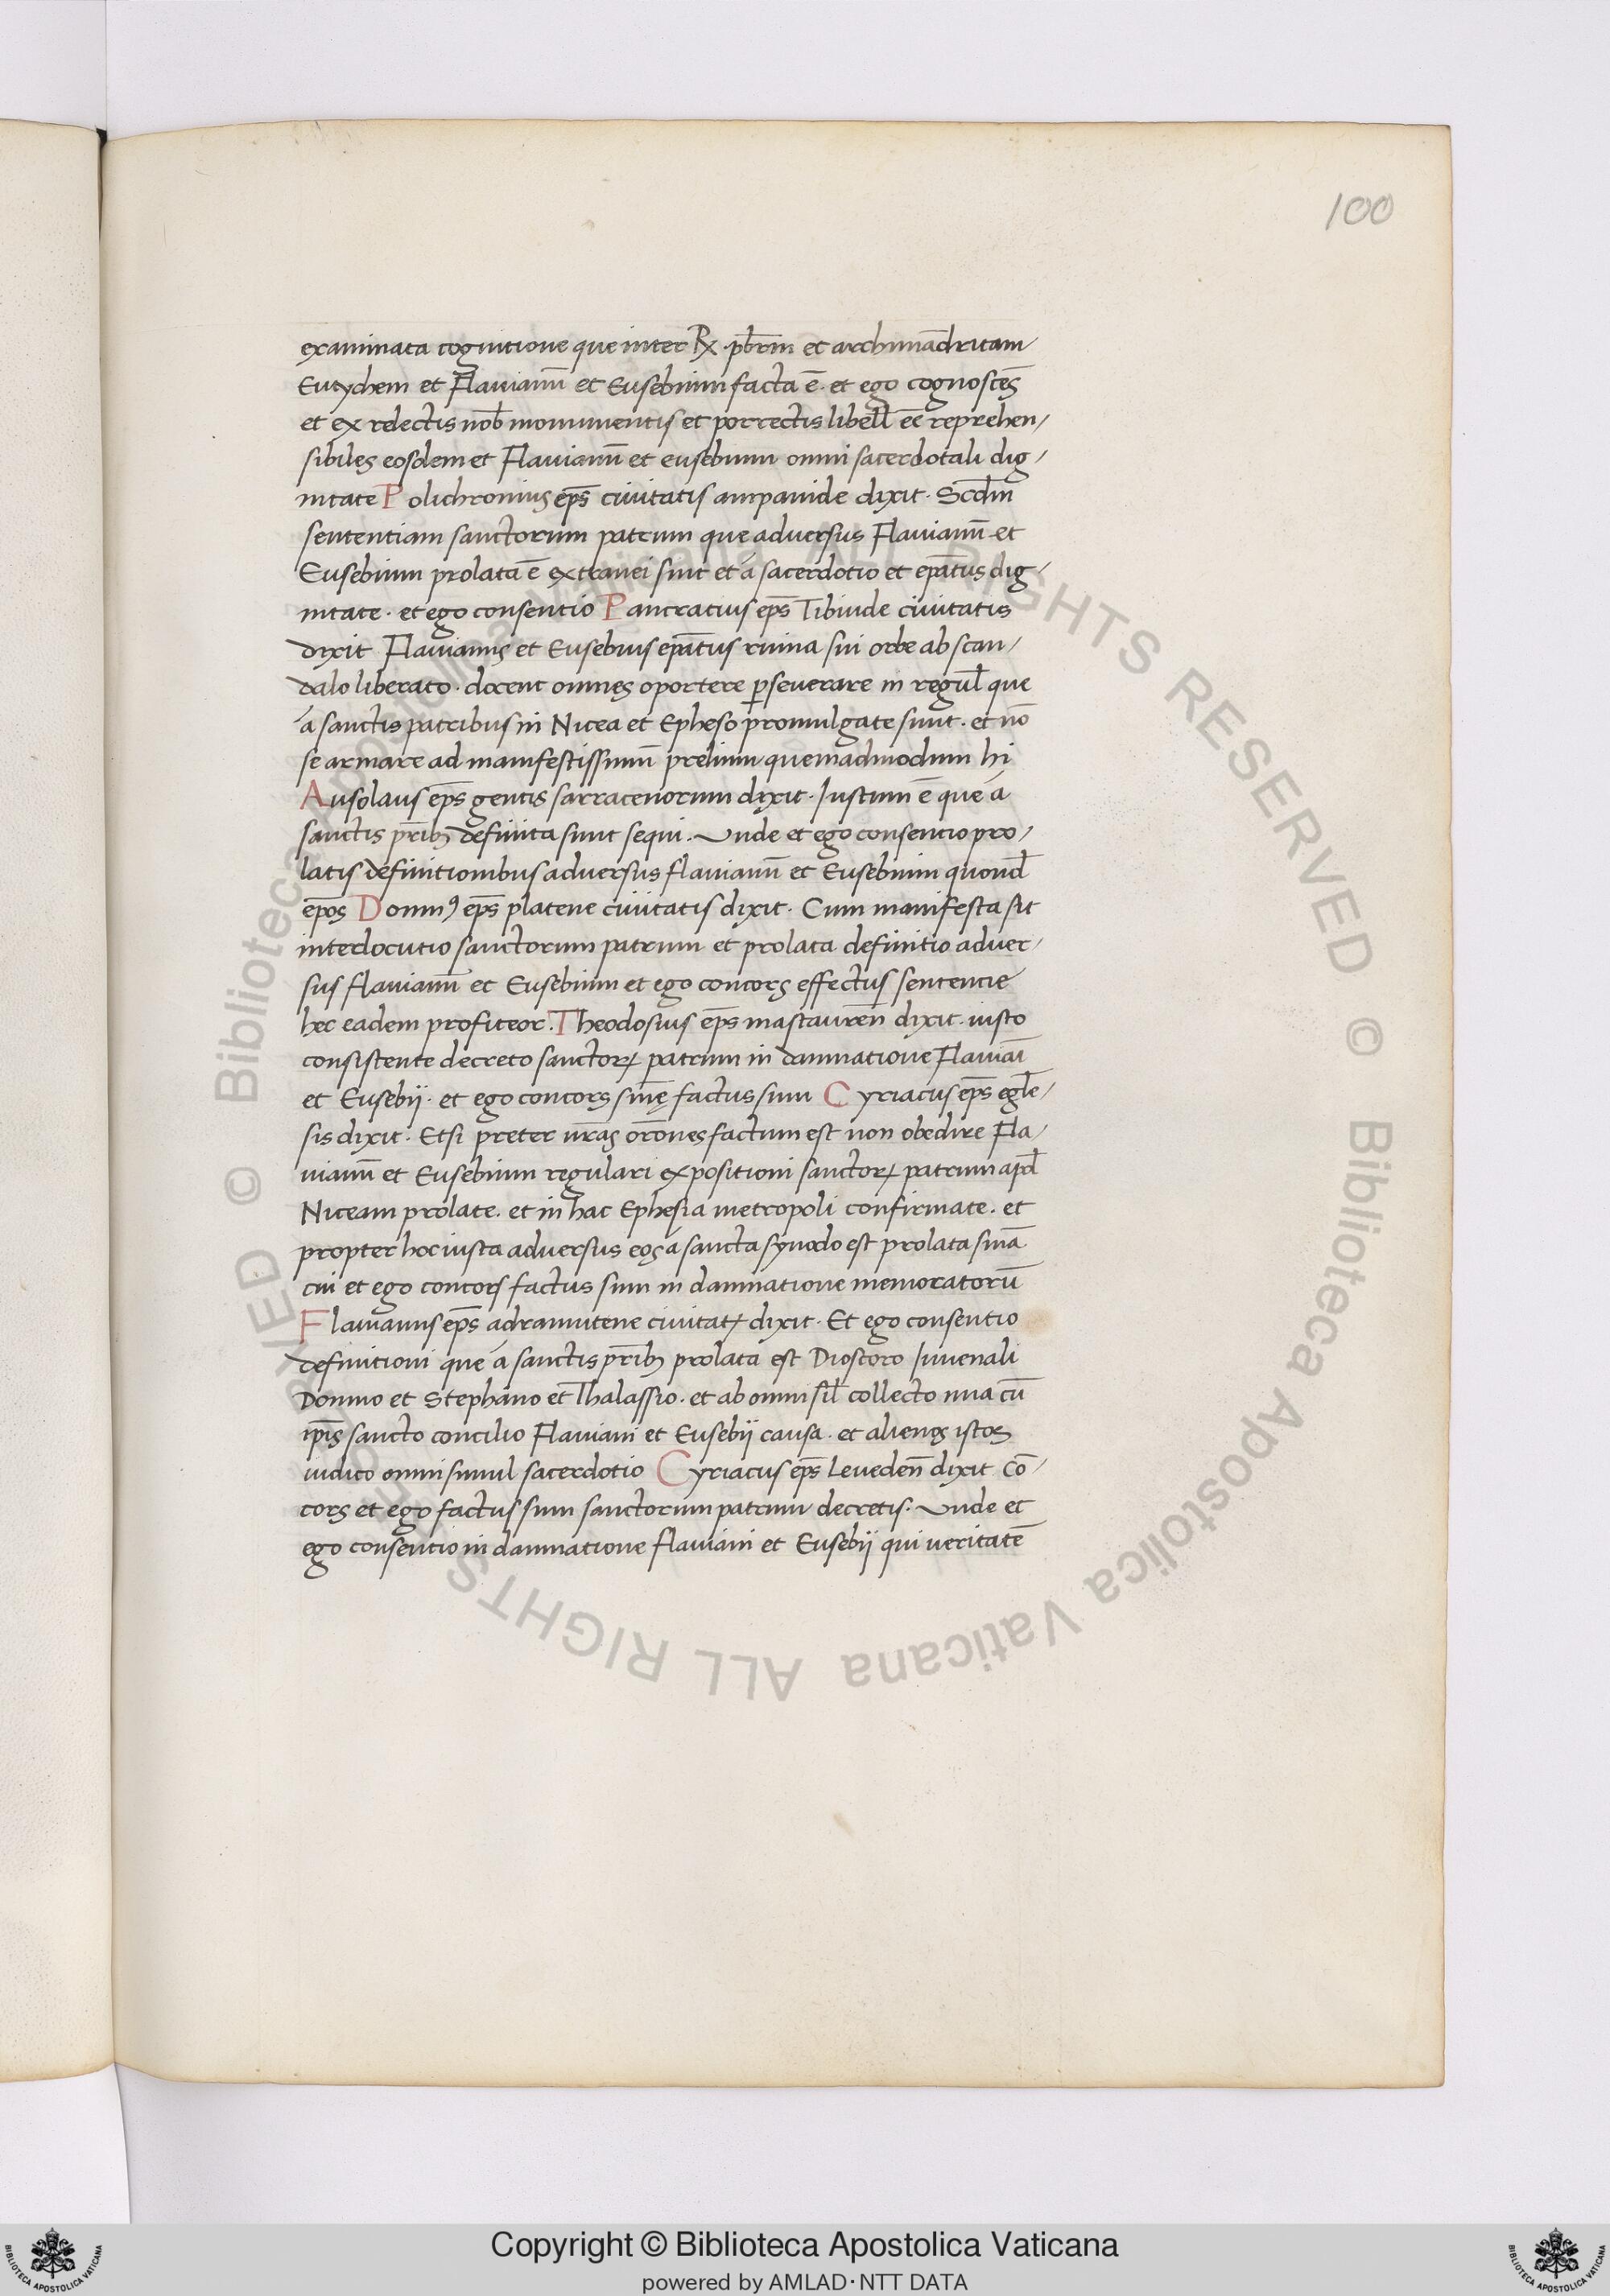 100
examinata cognitione que inter Rx̄. pb̄rm et archimādritam
Eutychem et Flauianū et Eusebium facta ē. et ego cognoscēs
et ex relectis nob̄ monumentis et porrectis libell̄ eē reprehen/
sibiles eosdem et Flauianū et eusebium omni sacerdotali dig/
nitate Polichronius ep̄s ciuitatis ampanide dixit. Scd̄m
sententiam sanctorum patrum que aduersus Flauianū et
Eusebium prolata ē extranei sint et á sacerdotio et ep̄atus dig/
nitate. et ego consentio Pancratius ep̄s Libiude ciuitatis
dixit Flauianus et Eusebius ep̄atus ruina sui orbe ab scan/
dalo liberato. docent omnes oportere ꝑseuerare in regul̄ que
á sanctis patribus in Nicea et Epheso promulgate sunt. et nō
se armare ad manifestissimū prelium quemadmodum hi
Ausolaus ep̄s gentis sarracenorum dixit. Iustum ē que á
sanctis pr̄ibꝫ definita sunt sequi. Unde et ego consentio pro/
latis definitionibus aduersus flauianū et Eusebium quond̄
ep̄os Domnꝰ ep̄s platene ciuitatis dixit. Cum manifesta sit
interlocutio sanctorum patrum et prolata definitio aduer/
sus flauianū et Eusebium et ego concors effectus sentencie
hec eadem profiteor. Theodosius ep̄s mastauren̄ dixit. iusto
consistente decreto sanctoꝝ patrum in damnatione Flauiāi
et Eusebij. et ego concors sn̄ię factus sum Cyriacus ep̄s egl̄e/
sis dixit. Etsi preter nr̄as orōnes factum est non obedire Fla/
uianū et Eusebium regulari expositioni sanctoꝝ patrum apd̄
Niceam prolate. et in hac Ephesia metropoli confirmate. et
propter hoc iusta aduersus eos á sancta synodo est prolata sn̄ia
cui et ego concors factus sum in damnatione memoratorū
Flauianus ep̄s adramitene ciuitatꝭ dixit. Et ego consentio
definitioni que á sanctis pr̄ibꝫ prolata est Dioscoro Iuuenali
Domno et Stephano et Thalassio. et ab omni sil̄ collecto una cū
ip̄is sancto concilio Flauiani et Eusebij causa. et alienos istos
iudico omni simul sacerdotio Cyriacus ep̄s Leueden̄ dixit Cō/
cors et ego factus sum sanctorum patrum decretis. Unde et
ego consentio in damnatione flauiani et Eusebij qui ueritatē
© Biblioteca Apostolica Vaticana ALL RIGHTS RESERVED © Biblioteca Apostolica Vaticana ALL RIGHTS RESERVED
Copyright © Biblioteca Apostolica Vaticana
powered by AMLAD·NTT DATA
BIBLIOTECA APOSTOLICA VATICANA
BIBLIOTECA APOSTOLICA VATICANA